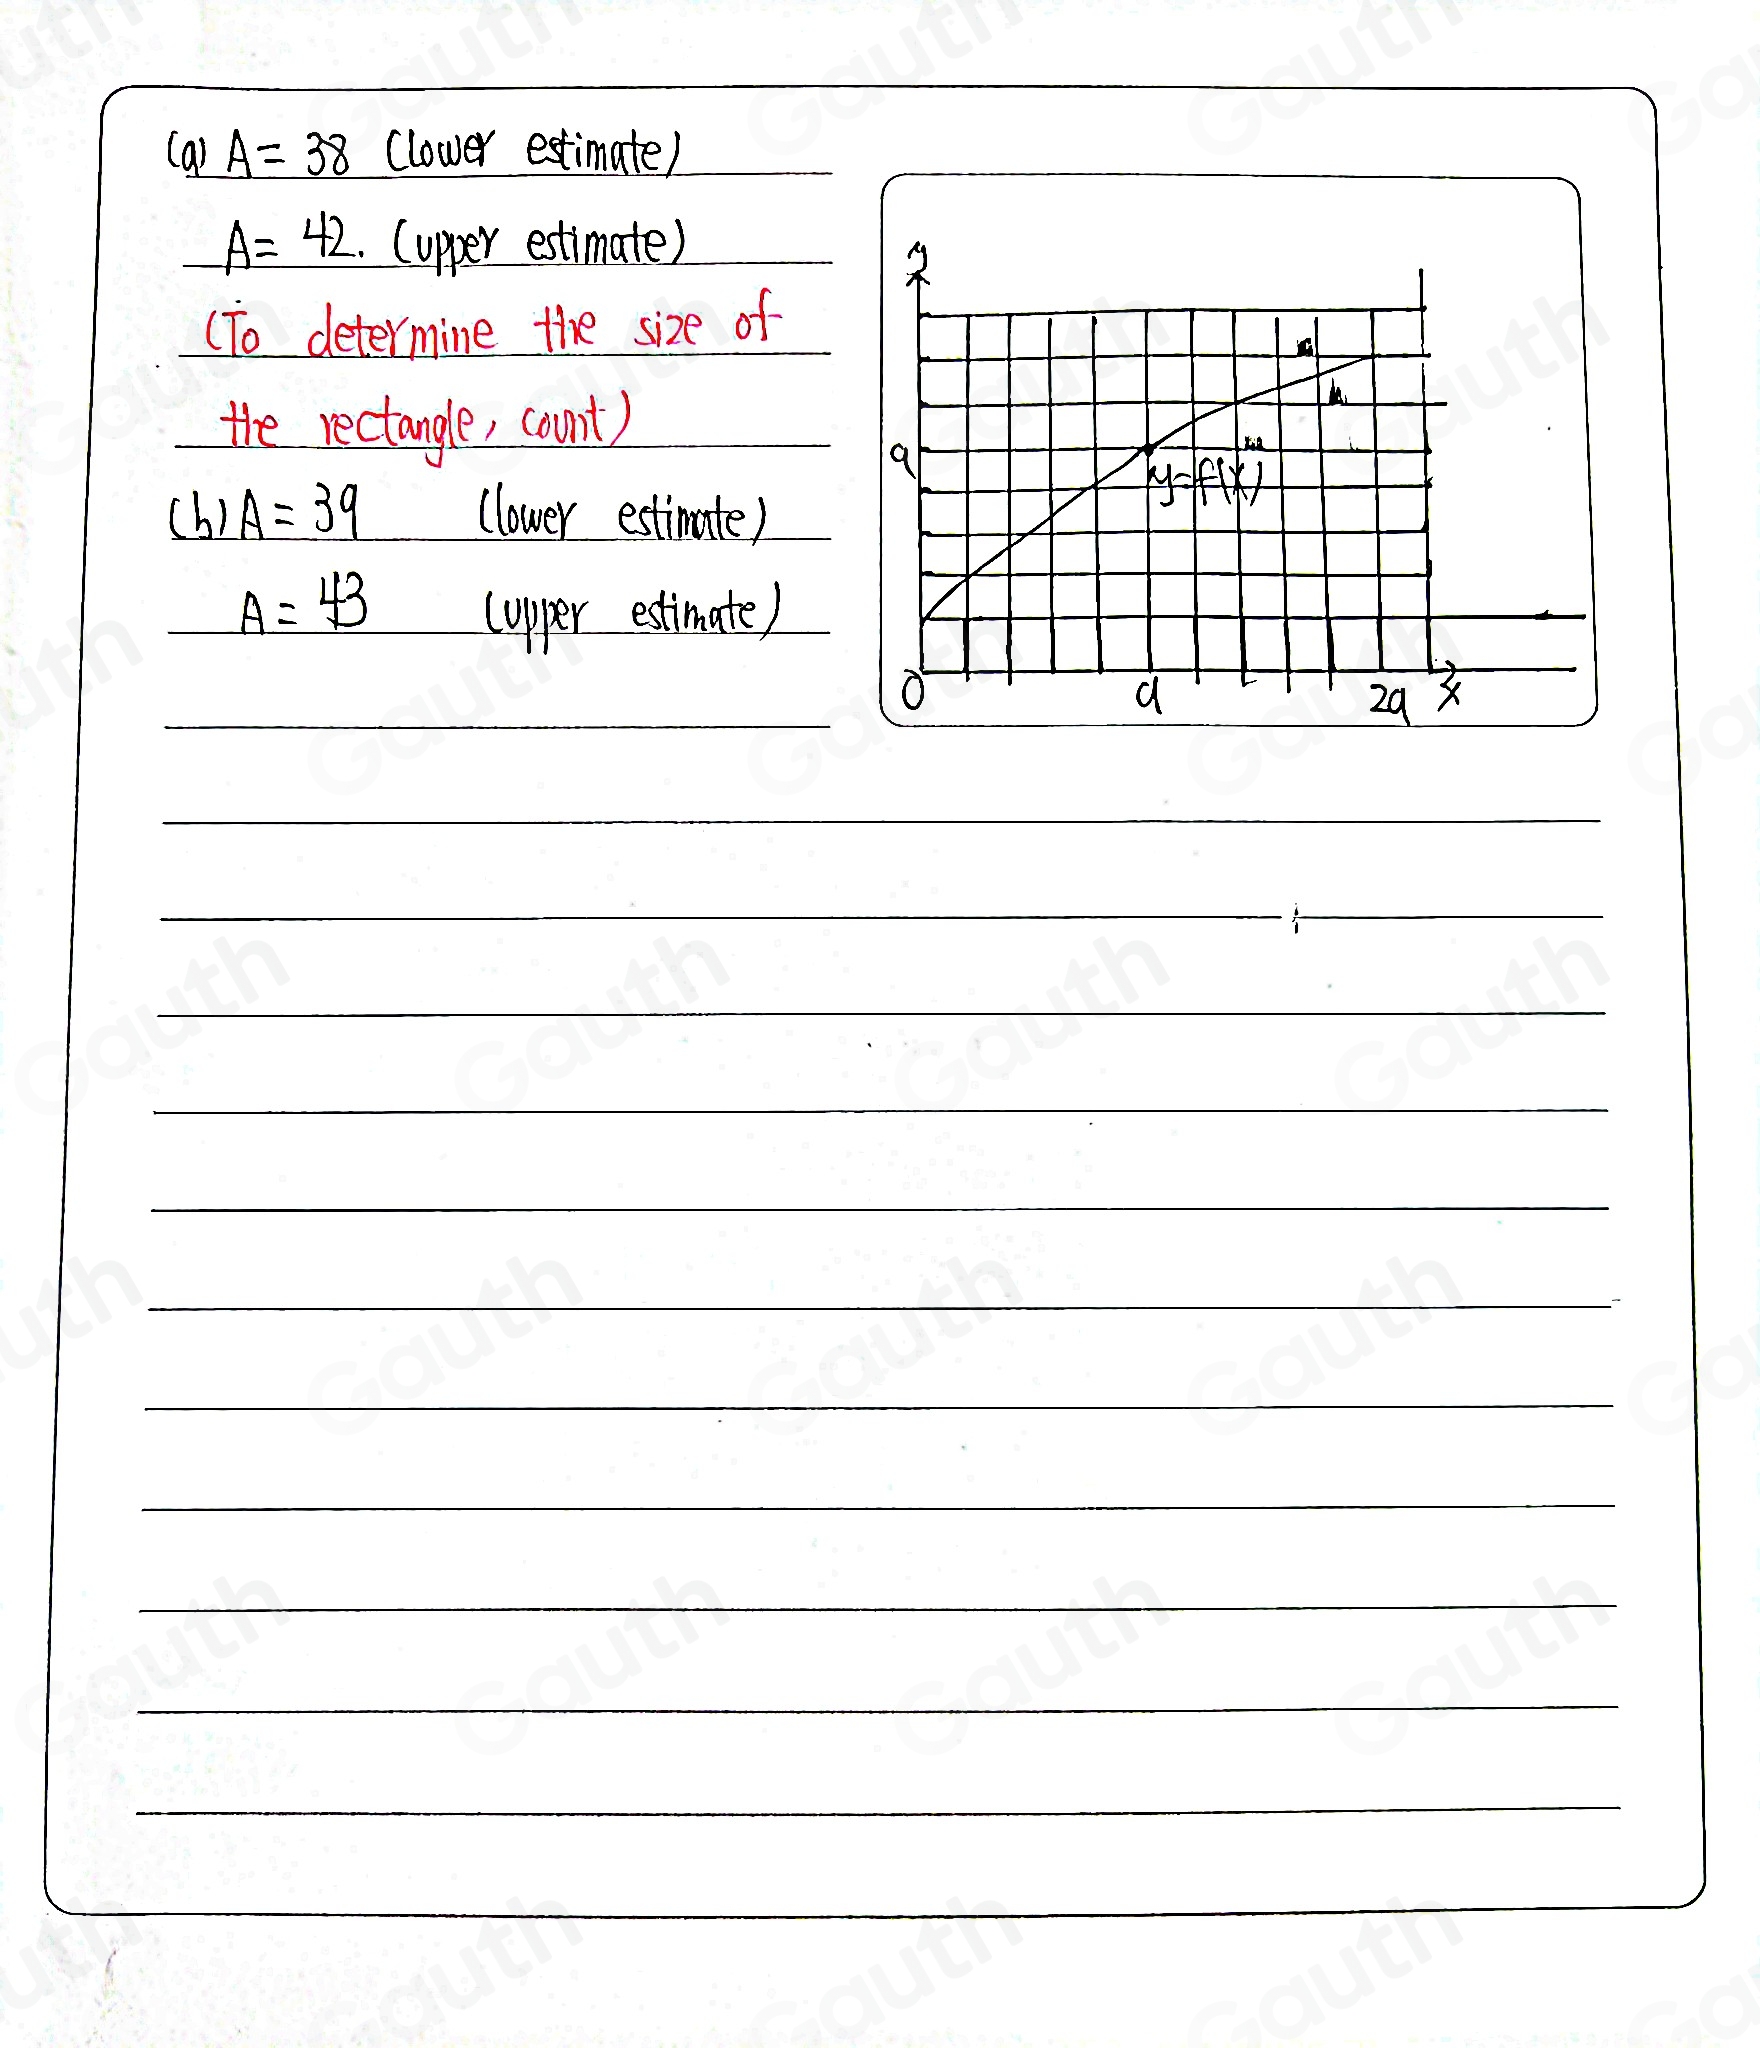 (a) A = 38 (lower estimate)
A = 42. (upper estimate)
(To determine the size of
the rectangle, count)
(b) A = 39 (lower estimate)
A = 43 (upper estimate)
y
a
y=f(x)
0 a 2a x
Gauth